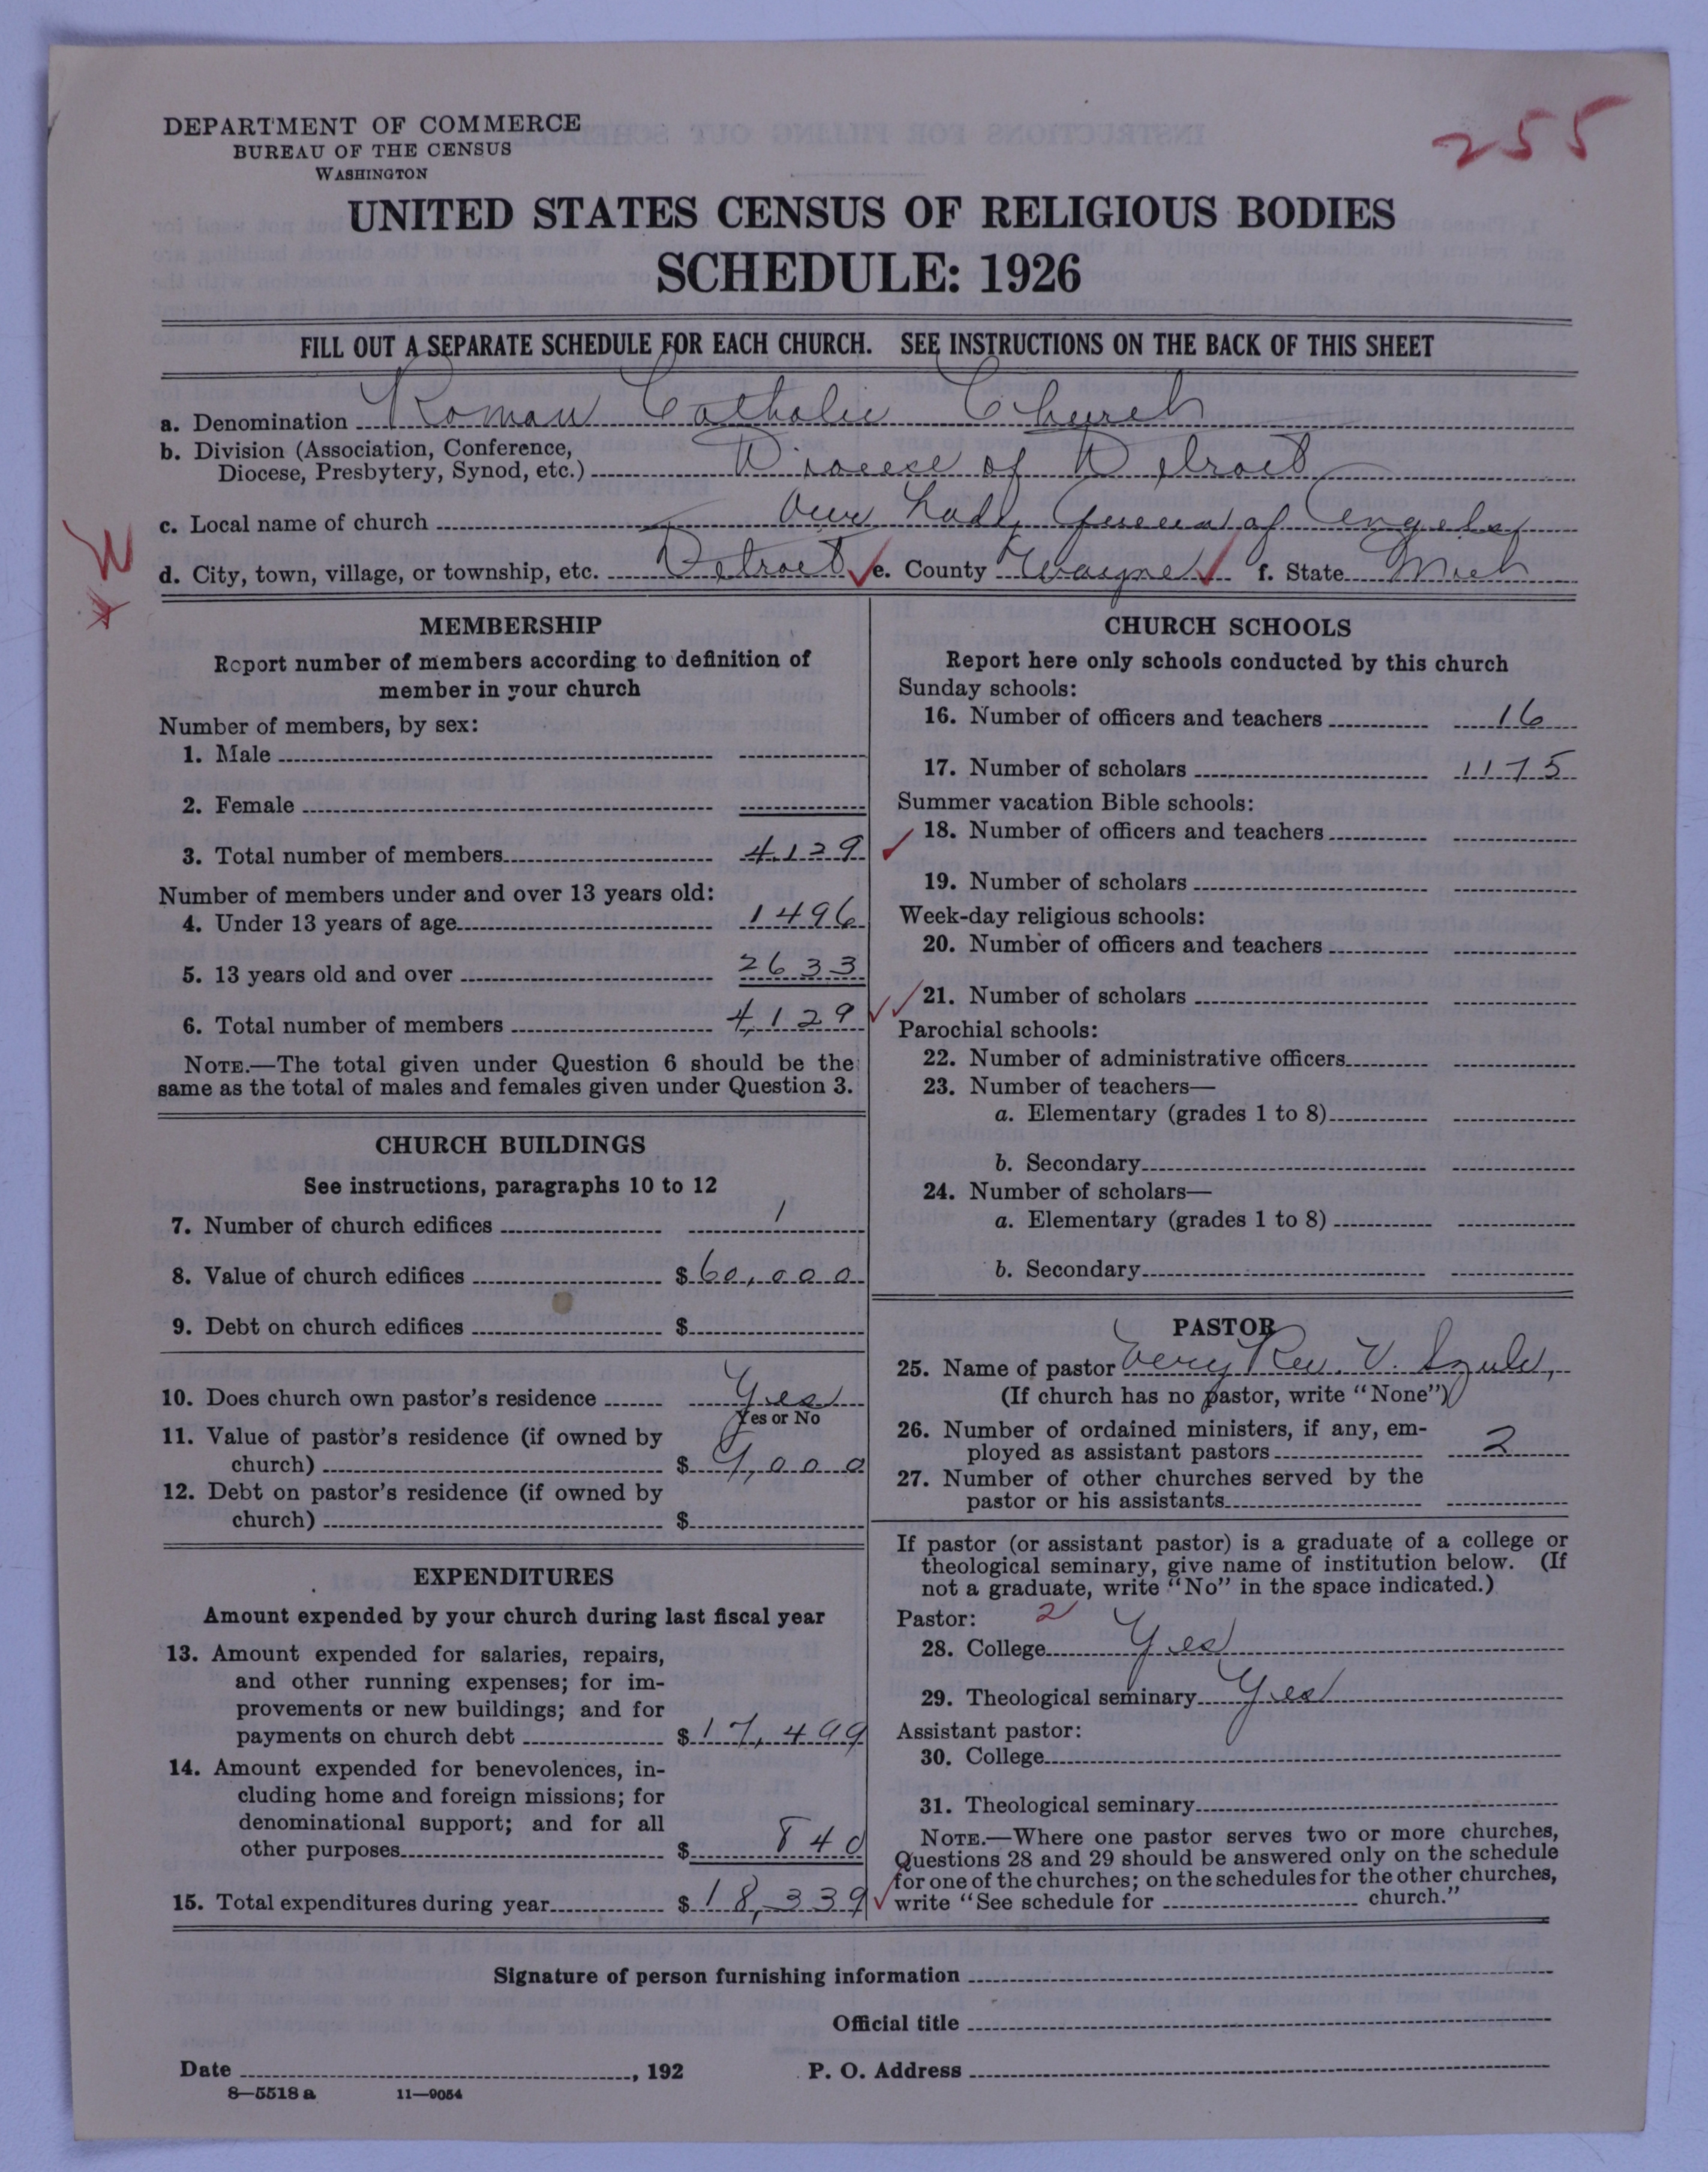 DEPARTMENT OF COMMERCE
BUREAU OF THE CENSUS
WASHINGTON
255
UNITED STATES CENSUS OF RELIGIOUS BODIES
SCHEDULE: 1926
FILL OUT A SEPARATE SCHEDULE FOR EACH CHURCH. SEE INSTRUCTIONS ON THE BACK OF THIS SHEET
a. Denomination Roman Catholic Church
b. Division (Association, Conference,
Diocese, Presbytery, Synod, etc.) Diocese of Detroit
c. Local name of church Our Lady Queen of Angels
d. City, town, village, or township, etc. Detroit e. County Wayne f. State Mich
MEMBERSHIP
Report number of members according to definition of
member in your church
Number of members, by sex:
1. Male
2. Female
3. Total number of members 4129
Number of members under and over 13 years old:
4. Under 13 years of age 1496
5. 13 years old and over 2633
6. Total number of members 4,129
NOTE.—The total given under Question 6 should be the
same as the total of males and females given under Question 3.
CHURCH BUILDINGS
See instructions, paragraphs 10 to 12
7. Number of church edifices 1
8. Value of church edifices $60,000
9. Debt on church edifices $
10. Does church own pastor's residence Yes
Yes or No
11. Value of pastor's residence (if owned by
church) $9,000
12. Debt on pastor's residence (if owned by
church) $
EXPENDITURES
Amount expended by your church during last fiscal year
13. Amount expended for salaries, repairs,
and other running expenses; for im-
provements or new buildings; and for
payments on church debt $17,499
14. Amount expended for benevolences, in-
cluding home and foreign missions; for
denominational support; and for all
other purposes $840
15. Total expenditures during year $18,339
CHURCH SCHOOLS
Report here only schools conducted by this church
Sunday schools:
16. Number of officers and teachers 16
17. Number of scholars 1175
Summer vacation Bible schools:
18. Number of officers and teachers
19. Number of scholars
Week-day religious schools:
20. Number of officers and teachers
21. Number of scholars
Parochial schools:
22. Number of administrative officers
23. Number of teachers—
a. Elementary (grades 1 to 8)
b. Secondary
24. Number of scholars—
a. Elementary (grades 1 to 8)
b. Secondary
PASTOR
25. Name of pastor Very Rev. V.
(If church has no pastor, write "None")
26. Number of ordained ministers, if any, em-
ployed as assistant pastors 2
27. Number of other churches served by the
pastor or his assistants
If pastor (or assistant pastor) is a graduate of a college or
theological seminary, give name of institution below. (If
not a graduate, write "No" in the space indicated.)
Pastor: 2
28. College Yes
29. Theological seminary Yes
Assistant pastor:
30. College
31. Theological seminary
NOTE.—Where one pastor serves two or more churches,
Questions 28 and 29 should be answered only on the schedule
for one of the churches; on the schedules for the other churches,
write "See schedule for church."
Signature of person furnishing information
Official title
Date , 192 P. O. Address
8—5518 a 11—9054